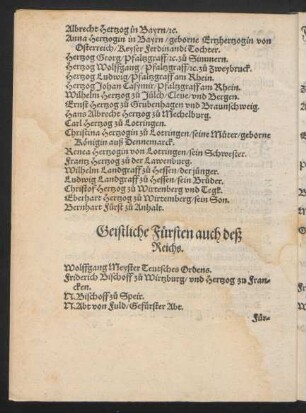 Albrecht Hertzog in Bayrn/ꝛc.
Anna Hertzogin in Bayrn/geborne Ertzhertzogin von
Osterreich/Keyser Ferdinandi Tochter.
Hertzog Georg/Pfaltzgraff/ꝛc.zů Simmern.
Hertzog Wolffgang/Pfaltzgraff/ꝛc.zů Zweybruck.
Hertzog Ludwig/Pfaltzgraff am Rhein.
Hertzog Johan Casimir/Pfaltzgraff am Rhein.
Wilhelm Hertzog zů Jülch/Cleue/vnd Bergen.
Ernst Hertzog zů Grubenhagen vnd Braunschweig.
Hans Albrecht Hertzog zů Mechelburg.
Carl Hertzog zů Lotringen.
Christina Hertzogin zů Lotringen/seine Můter/geborne
Königin auß Dennemarck.
Renea Hertzogin von Lotringen/sein Schwester.
Frantz Hertzog zů der Lawenburg.
Wilhelm Landgraff zů Hessen/der jünger.
Ludwig Landgraff zů Hessen/sein Brůder.
Christof Hertzog zů Wirtenberg vnd Tegk.
Eberhart Hertzog zů Wirtemberg/sein Son.
Bernhart Fürst zů Anhalt.
Geistliche Fürsten auch deß
Reichs.
Wolffgang Meyster Teutsches Ordens.
Friderich Bischoff zů Wirtzburg/vnd Hertzog zu Francken.
N.Bischoff zů Speir.
N.Abt von Fuld/Gefürster Abt.
Für-